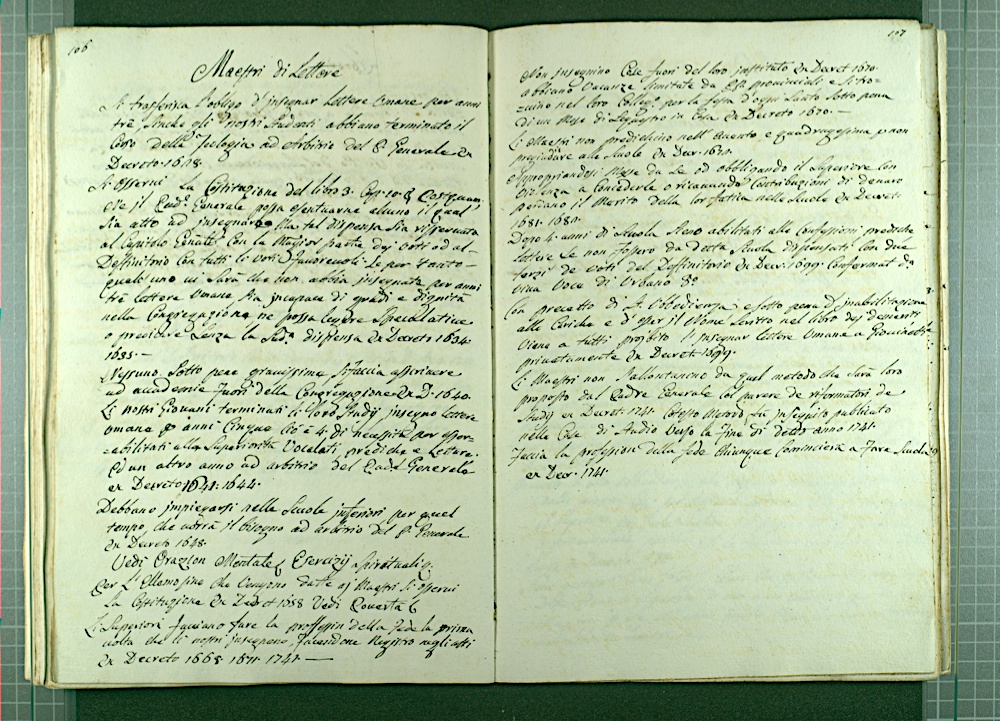 106
Maestri di Lettere
Si trasferisca l'obligo d'insegnar lettere Umane per anni
tre, finche gli nostri Studenti abbiano terminato il
Corso della Teologia ad Arbitrio del P. Generale Ex
Decreto 1628.
Si osservi la Costituzione del libro 3. Cap. 10. §
che il Generale possa esentuarne alcuno il qual
sia atto ad insegnare Ma tal dispensa sia risservata
al Capitolo Genāle con la Magior parte dej voti od al
Deffinitorio con tutti li voti favorevoli. Se per tanto
qualc'uno vi sarà che non abbia insegnato per anni
tre lettere Umane, sia incapace di gradi e dignità
nella Congregazione ne possa leggere Speculative
o predicare senza la Sud.a dispensa Ex Decreto 1634.
1635.—
Nessuno sotto pene gravissime si faccia ascrivere
ad accademie fuori della Congregazione Ex D. 1640.
Li nostri Giovani terminati li loro Studij insegnino lettere
umane p anni Cinque cioè 4 di necessità per esser
abilitati alla Superiorità Vocalati, prediche e Letture.
Ed un altro anno ad arbitrio del Pad.e Generale
ex Decreto 1641. 1644.
Debbano impiegarsi nelle Scuole inferiori per quel
tempo, che vorrà il bisogno ad arbitrio del P. Generale
Ex Decreto 1648.
Vedi Orazion Mentale, Esercizij Spirituali
Per l'Elemosine che vengono date aj Maestri si osservi
la Costituzione Ex Decret 1658 Vedi Povertà
Li Superiori facciano fare la professione della fede la prima
volta che li nostri insegnano, facendone Registro negli atti
Ex Decreto 1663. 1671. 1741.—
107
Non insegnino Cose fuori del loro instituto Ex Decret 1670.
Abbiano Vacanze limitate da PP. provinciali e si tro-
vino nel loro Colleg. per la festa d'ogni Santo sotto pena
di un Mese di in Casa Ex Decreto 1670.—
Li Maestri non predichino nell'Avento e Quadragesima p non
pregiudicare alle Scuole Ex Decr. 1671.
Espropriandosi Messe da Se od obbligando il Superiore con
a concederle o ricavando Contribuzioni di denaro
perdano il Merito della lor fatica nelle Scuole Ex Decret.
1681. 1684.
Dopo 4 anni di Scuola Sieno abilitati alle Confessioni prediche
lettere Se non fossero da detta Scuola dispensati con due
terzi de voti del Deffinitorio Ex Decr. 1699. Conformat da
viva voce di Urbano 8°
Con precetto di S. Obedienza, e sotto pena d'inabilitazione
alle Cariche e d'esser il Nome scritto nel libro dej demeriti
viene a tutti proibito l'insegnar lettere Umane a Giovinetti
privatamente Ex Decret 1699.
Li Maestri non s'allontanino da quel metodo che sarà loro
proposto dal Padre Generale col parere de riformatori de
Studij ex Decret 1741. Codesto Metodo fu in seguito publicato
nelle Case di Studio verso la fine di detto anno 1741.
Faccia la professione della fede chiunque Comincierà a fare Scuola
ex Decr. 1741